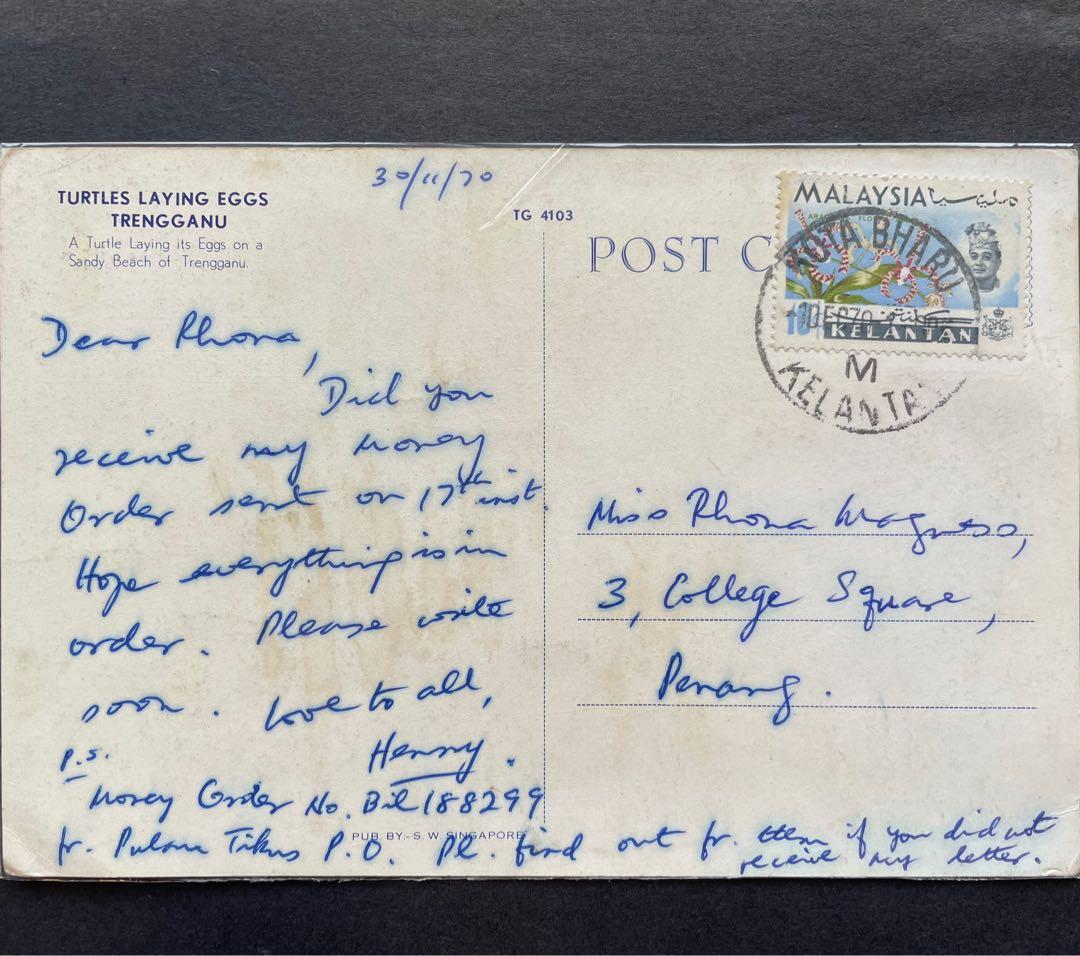 30/11/70
TURTLES LAYING EGGS
TRENGGANU
A Turtle Laying its Eggs on a
Sandy Beach of Trengganu.
TG 4103
POST C
MALAYSIA مليسيا
KOTA BHARU
1 DE 70
KELANTAN
M
KELANTA
Dear Rhona,
Did you
receive my money
Order sent on 17th inst.
Hope everything is in
order. Please write
soon. Love to all,
Henry.
P.S.
Money Order No. Bil 188299
fr. Pulau Tikus P.O. Pl. find out fr. them if you did not
receive my letter.
PUB. BY:- S. W. SINGAPORE
Miss Rhona Magness,
3, College Square,
Penang.